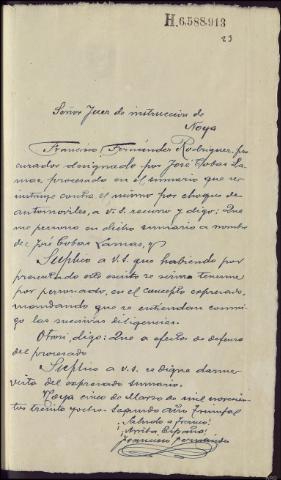 H.6.588.913
23
Señor Juez de instruccion de
Noya
Francisco Fernández Rodriguez, pro
curador designado por José Tobar La
mas, procesado en el sumario que se
instruye contra el mismo por choque de
automoviles, a v.s. recurro y digo: Que
me persono en dicho sumario a nombre
de José Tobar Lamas, y
Suplico a V.S. que habiendo por
presentado este escrito se sirva tenerme
por personado, en el concepto expresado,
mandando que se entiendan conmi
go las sucesivas diligencias.
Otrosi, digo: Que a efectos de defensa
del procesado
Suplico a v.s. se digne darme
vista del expresado sumario.
Noya cinco de Marzo de mil novecien
tos treinta y ocho. segundo año triunfal
¡Saludo a Franco!
¡Arriba España!
Francisco Fernández